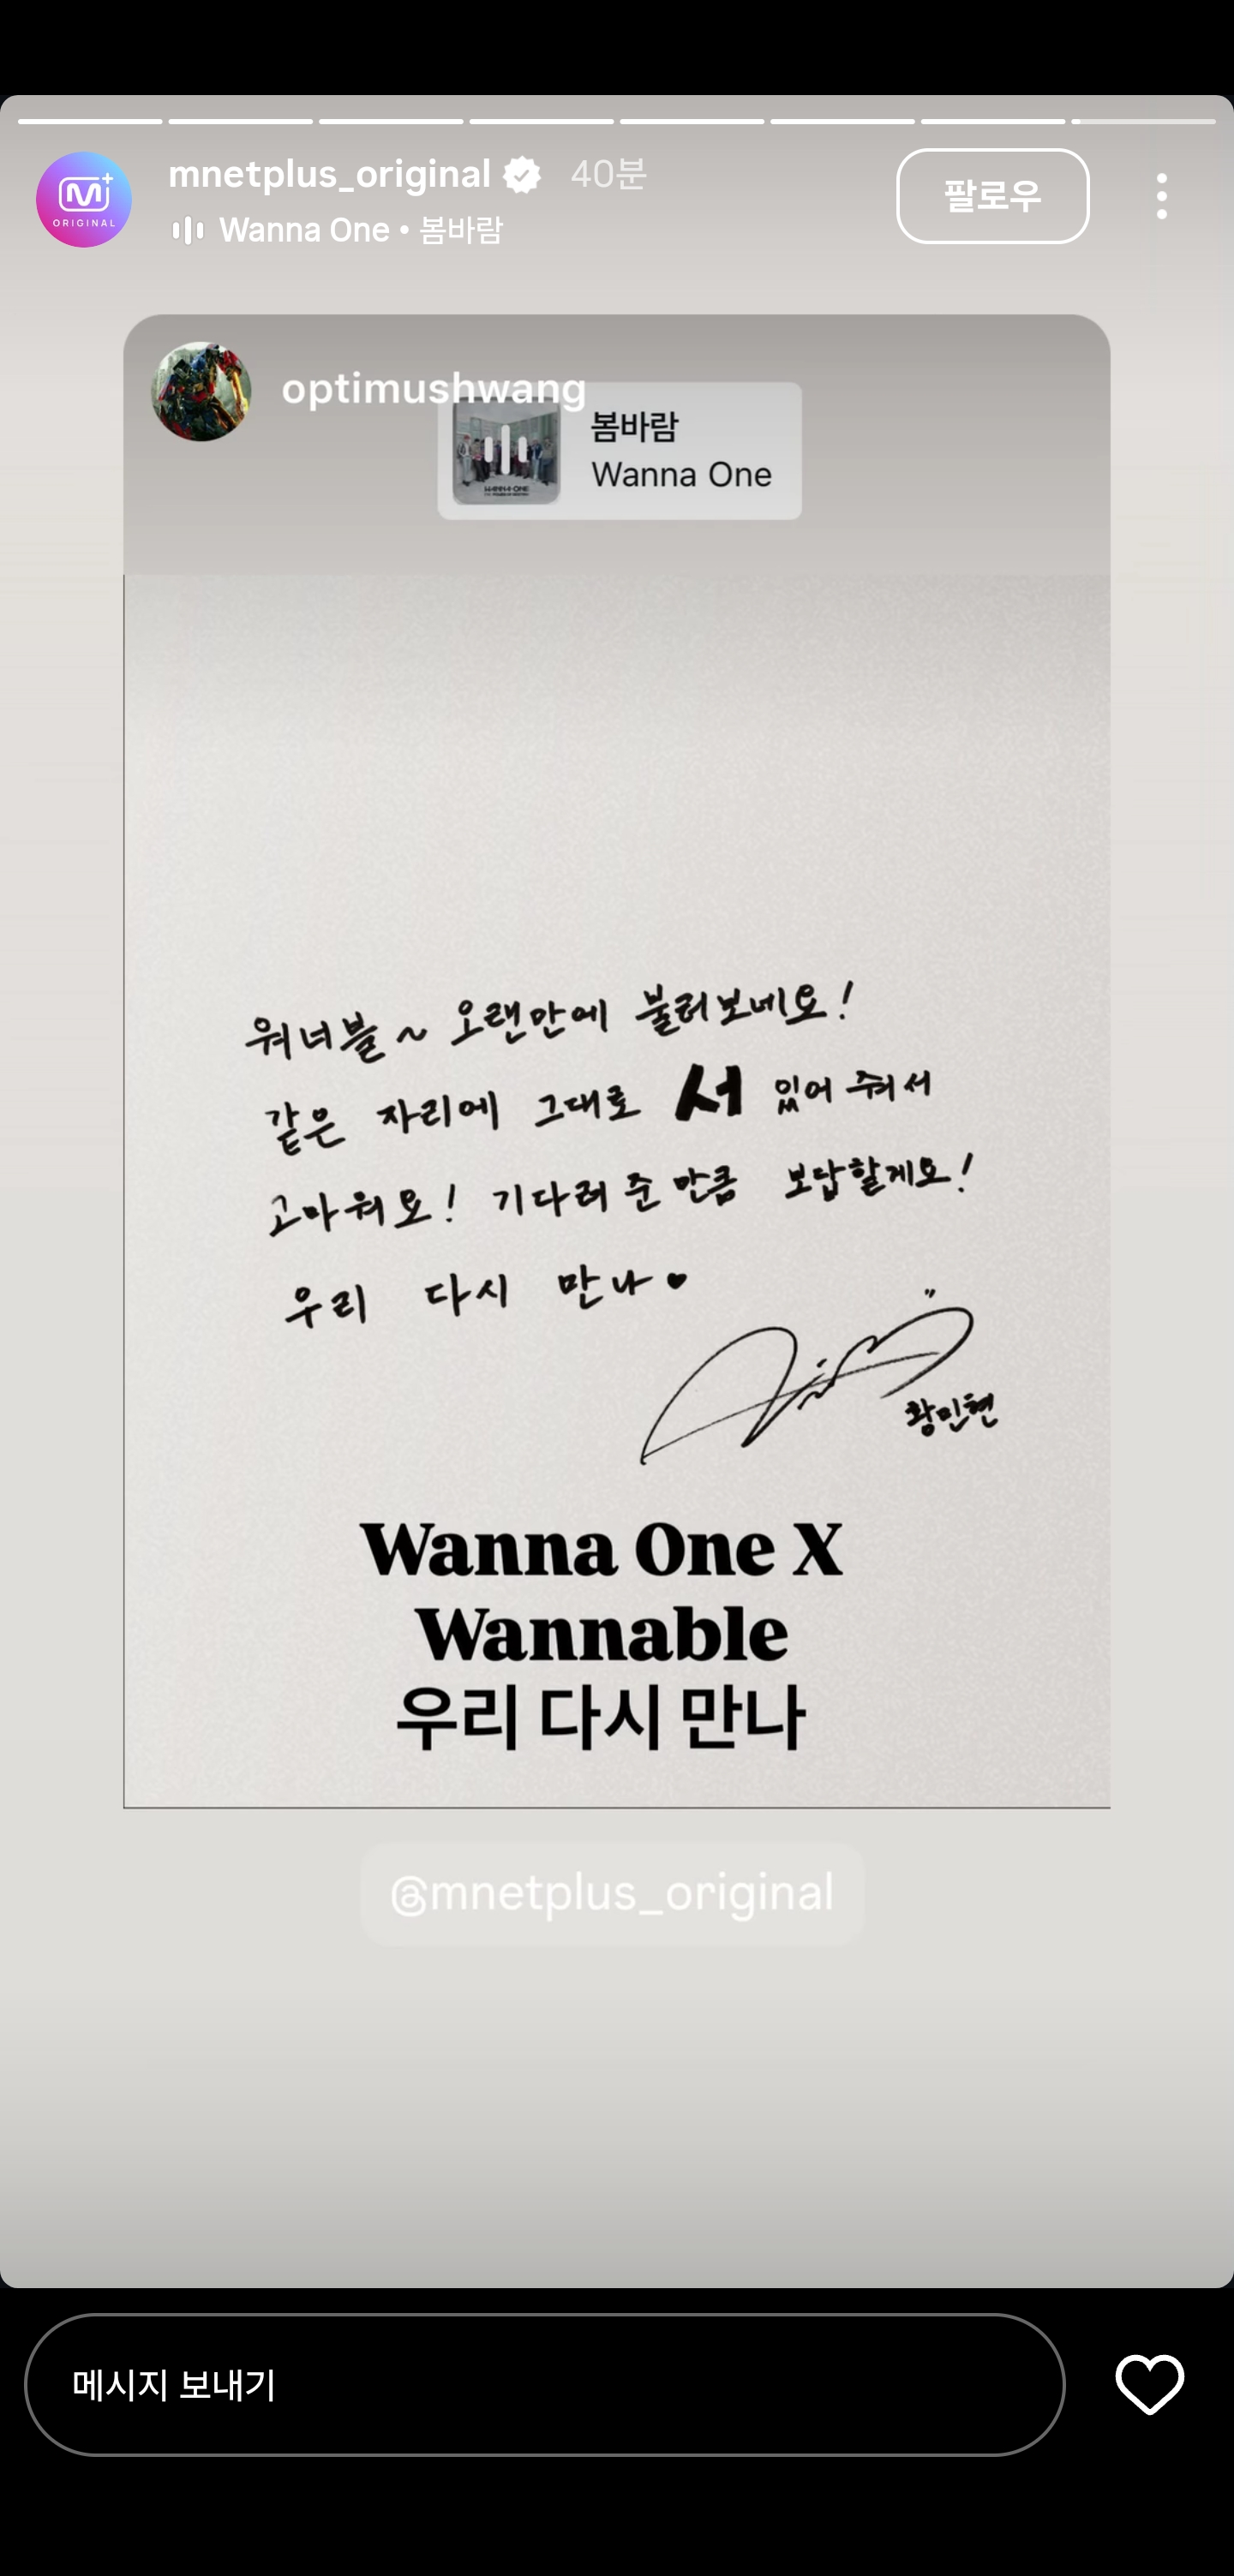 mnetplus_original 40분
Wanna One • 봄바람
팔로우
M+
ORIGINAL
optimushwang
봄바람
Wanna One
WANNA·ONE
워너블 ~ 오랜만에 불러보네요!
같은 자리에 그대로 서 있어 줘서
고마워요! 기다려 준 만큼 보답할게요!
우리 다시 만나♥
황민현
Wanna One X
Wannable
우리 다시 만나
@mnetplus_original
메시지 보내기